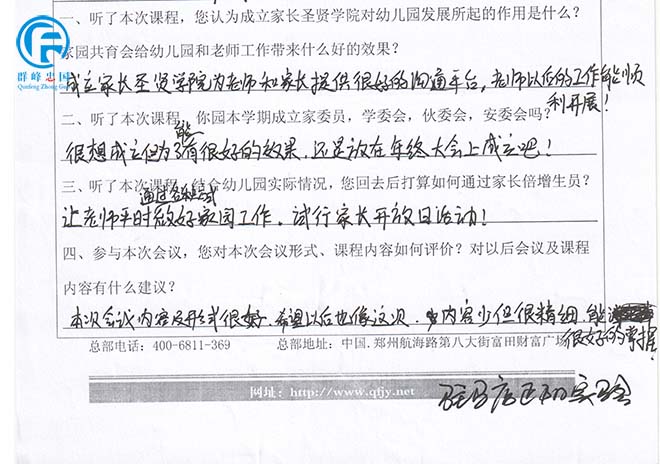 一、听了本次课程，您认为成立家长圣贤学院对幼儿园发展所起的作用是什么？
家园共育会给幼儿园和老师工作带来什么好的效果？
群峰忠国
Qunfeng Zhong Guo
成立家长圣贤学院为老师和家长提供很好的沟通平台，老师以后的工作能顺
利开展！
二、听了本次课程，你园本学期成立家委员，学委会，伙委会，安委会吗？
能
很想成立但为了有很好的效果，还是放在年终大会上成立吧！
三、听了本次课程，结合幼儿园实际情况，您回去后打算如何通过家长倍增生员？
通过各种形式
让老师平时做好家园工作，试行家长开放日活动！
四、参与本次会议，您对本次会议形式、课程内容如何评价？对以后会议及课程
内容有什么建议？
本次会议内容及形式很好，希望以后也像这次，内容少但很精细，能
很好的掌握！
总部电话：400-6811-369 总部地址：中国.郑州航海路第八大街富田财富广场
网址：http://www.qfjy.net
驻马店 实验